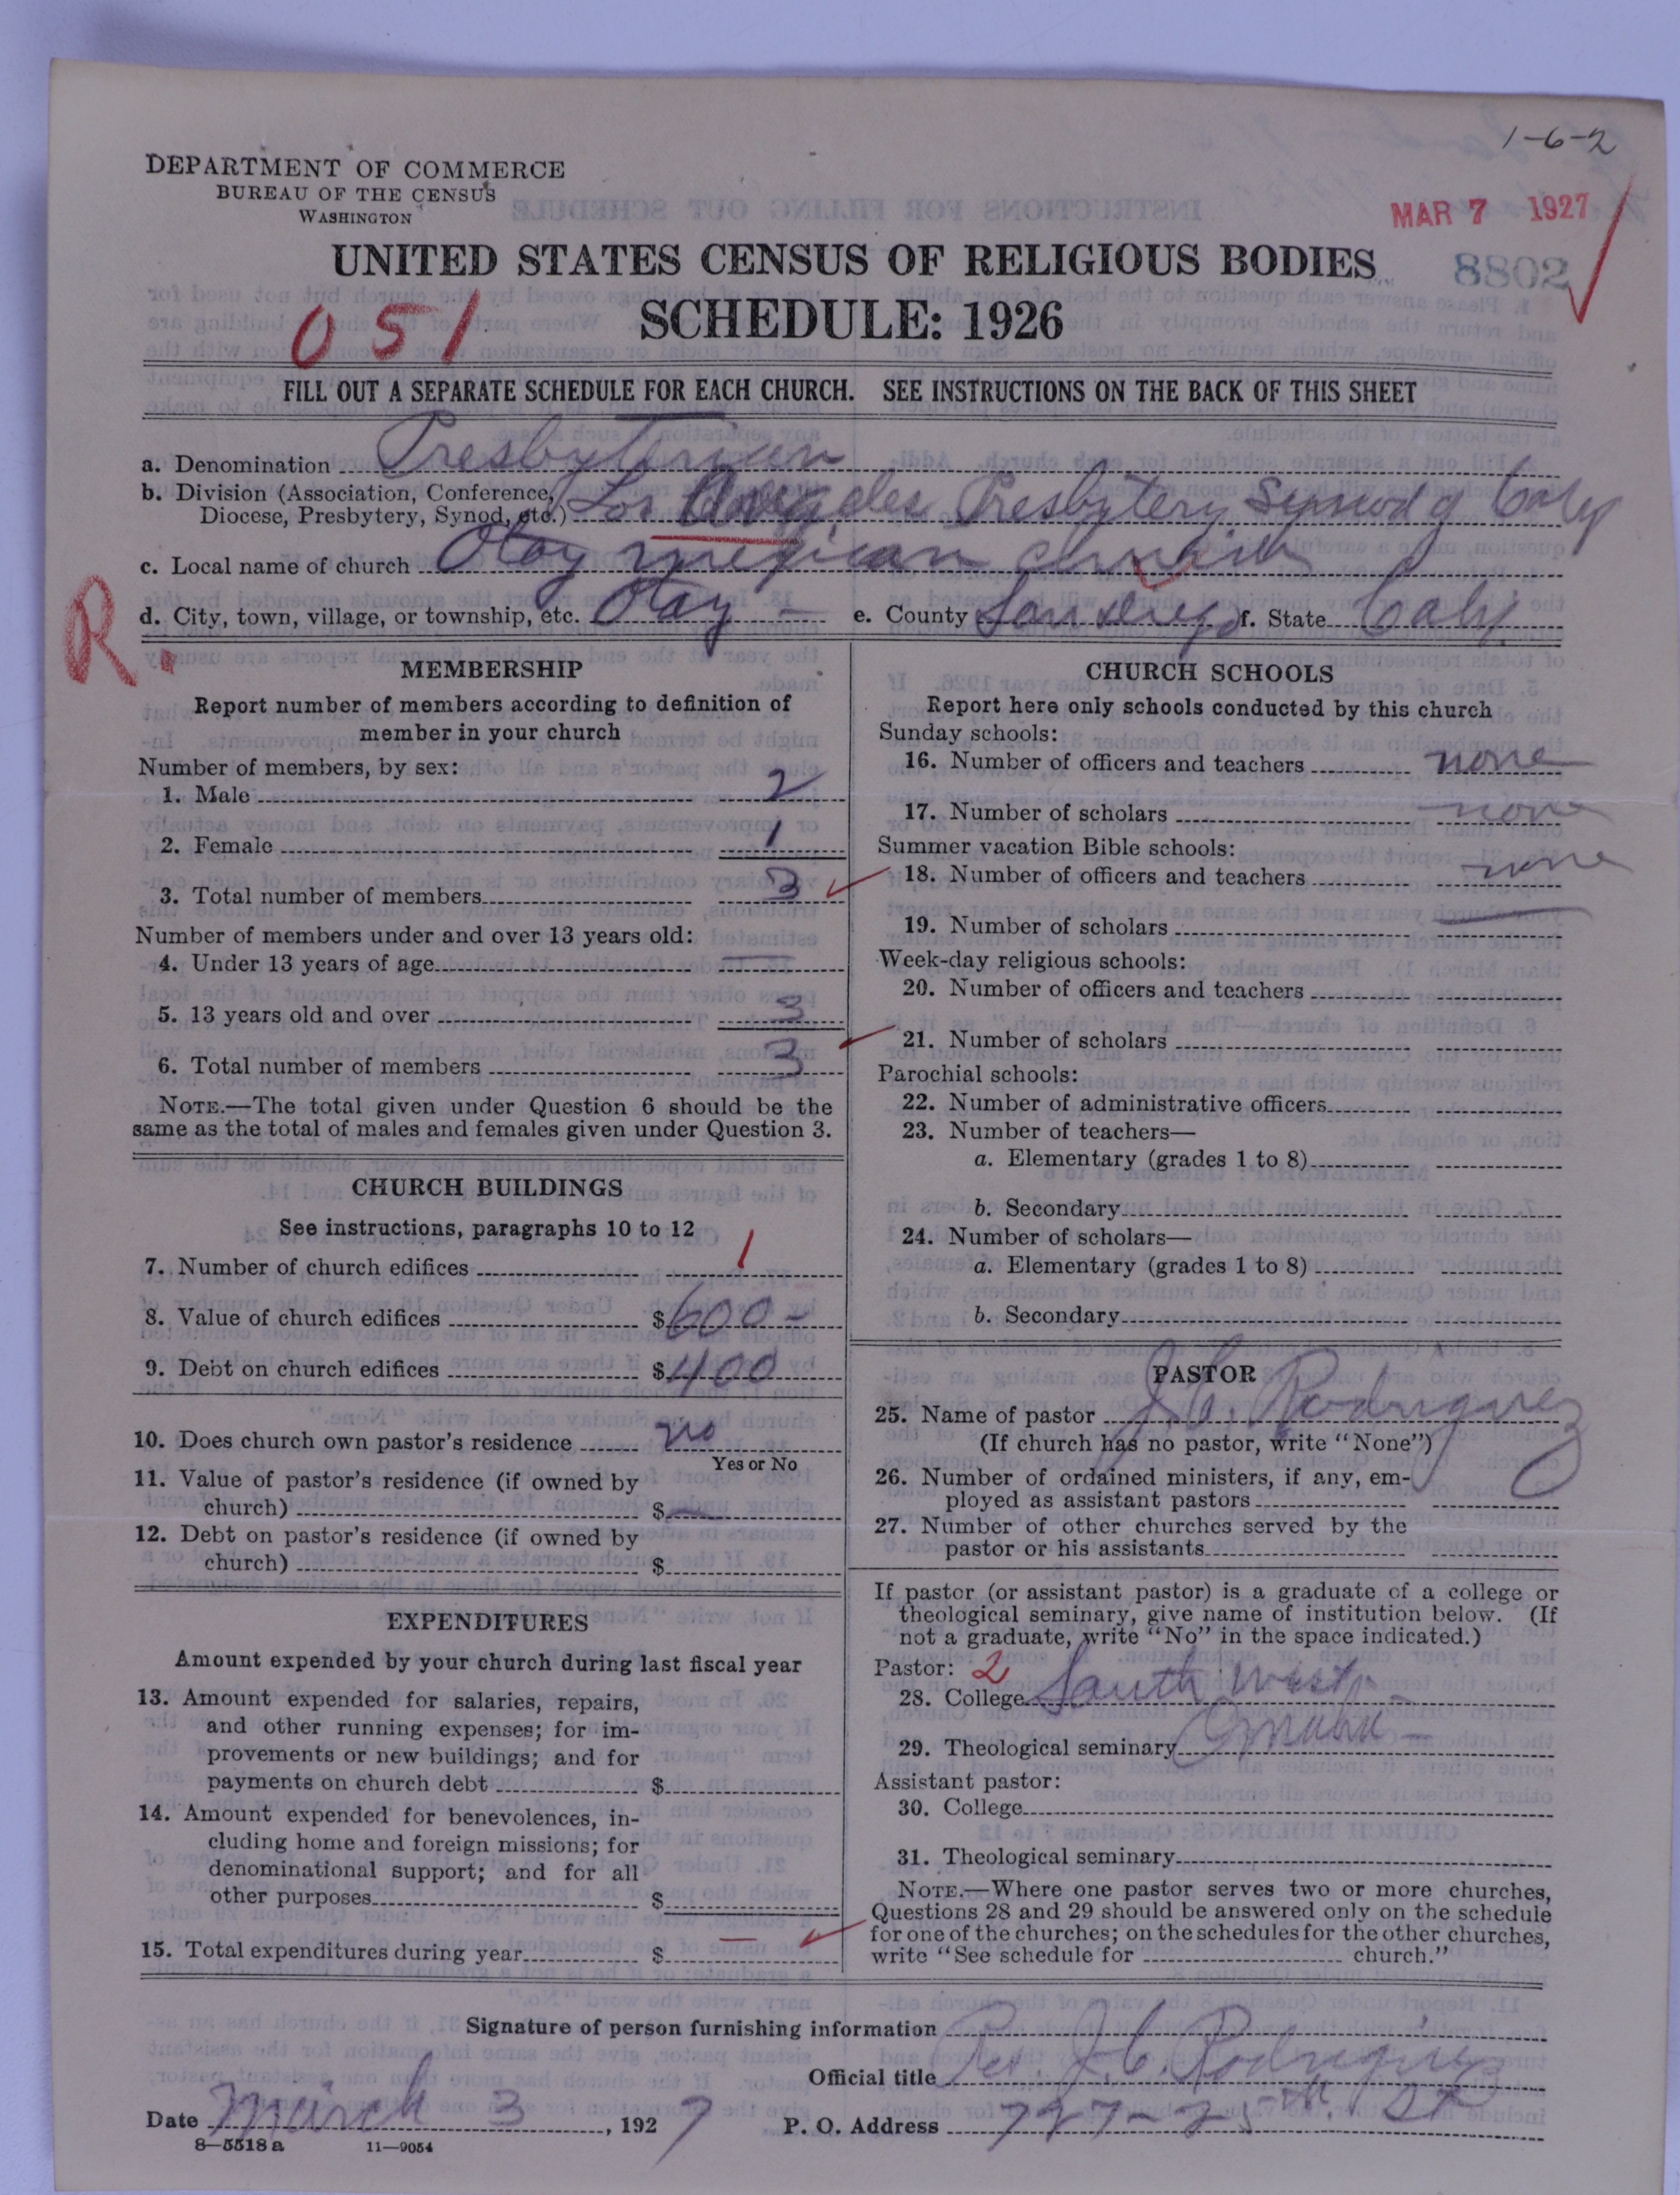 1-6-2
DEPARTMENT OF COMMERCE
BUREAU OF THE CENSUS
WASHINGTON
MAR 7 1927
UNITED STATES CENSUS OF RELIGIOUS BODIES
8802
051
SCHEDULE: 1926
FILL OUT A SEPARATE SCHEDULE FOR EACH CHURCH. SEE INSTRUCTIONS ON THE BACK OF THIS SHEET
a. Denomination Presbyterian
b. Division (Association, Conference,
Diocese, Presbytery, Synod, etc.) Los Angeles Presbytery Synod of Calif
c. Local name of church Otay Mexican church
R.
d. City, town, village, or township, etc. Otay — e. County San Diego f. State Calif
MEMBERSHIP
Report number of members according to definition of
member in your church
Number of members, by sex:
1. Male 2
2. Female 1
3. Total number of members 3
Number of members under and over 13 years old:
4. Under 13 years of age —
5. 13 years old and over 3
6. Total number of members 3
NOTE.—The total given under Question 6 should be the
same as the total of males and females given under Question 3.
CHURCH BUILDINGS
See instructions, paragraphs 10 to 12
7. Number of church edifices 1
8. Value of church edifices $ 600 —
9. Debt on church edifices $ 400
10. Does church own pastor's residence no
Yes or No
11. Value of pastor's residence (if owned by
church) $ —
12. Debt on pastor's residence (if owned by
church) $
EXPENDITURES
Amount expended by your church during last fiscal year
13. Amount expended for salaries, repairs,
and other running expenses; for im-
provements or new buildings; and for
payments on church debt $
14. Amount expended for benevolences, in-
cluding home and foreign missions; for
denominational support; and for all
other purposes $
15. Total expenditures during year $ —
CHURCH SCHOOLS
Report here only schools conducted by this church
Sunday schools:
16. Number of officers and teachers none
17. Number of scholars none
Summer vacation Bible schools:
18. Number of officers and teachers none
19. Number of scholars —
Week-day religious schools:
20. Number of officers and teachers
21. Number of scholars
Parochial schools:
22. Number of administrative officers
23. Number of teachers—
a. Elementary (grades 1 to 8)
b. Secondary
24. Number of scholars—
a. Elementary (grades 1 to 8)
b. Secondary
PASTOR
25. Name of pastor J. C. Rodriguez
(If church has no pastor, write "None")
26. Number of ordained ministers, if any, em-
ployed as assistant pastors
27. Number of other churches served by the
pastor or his assistants
If pastor (or assistant pastor) is a graduate of a college or
theological seminary, give name of institution below. (If
not a graduate, write "No" in the space indicated.)
Pastor: 2
28. College South West —
29. Theological seminary Omaha —
Assistant pastor:
30. College
31. Theological seminary
NOTE.—Where one pastor serves two or more churches,
Questions 28 and 29 should be answered only on the schedule
for one of the churches; on the schedules for the other churches,
write "See schedule for church."
Signature of person furnishing information
Official title J. C. Rodriguez
Date March 3, 1927 P. O. Address 727-25th St
8—5518 a 11—9054